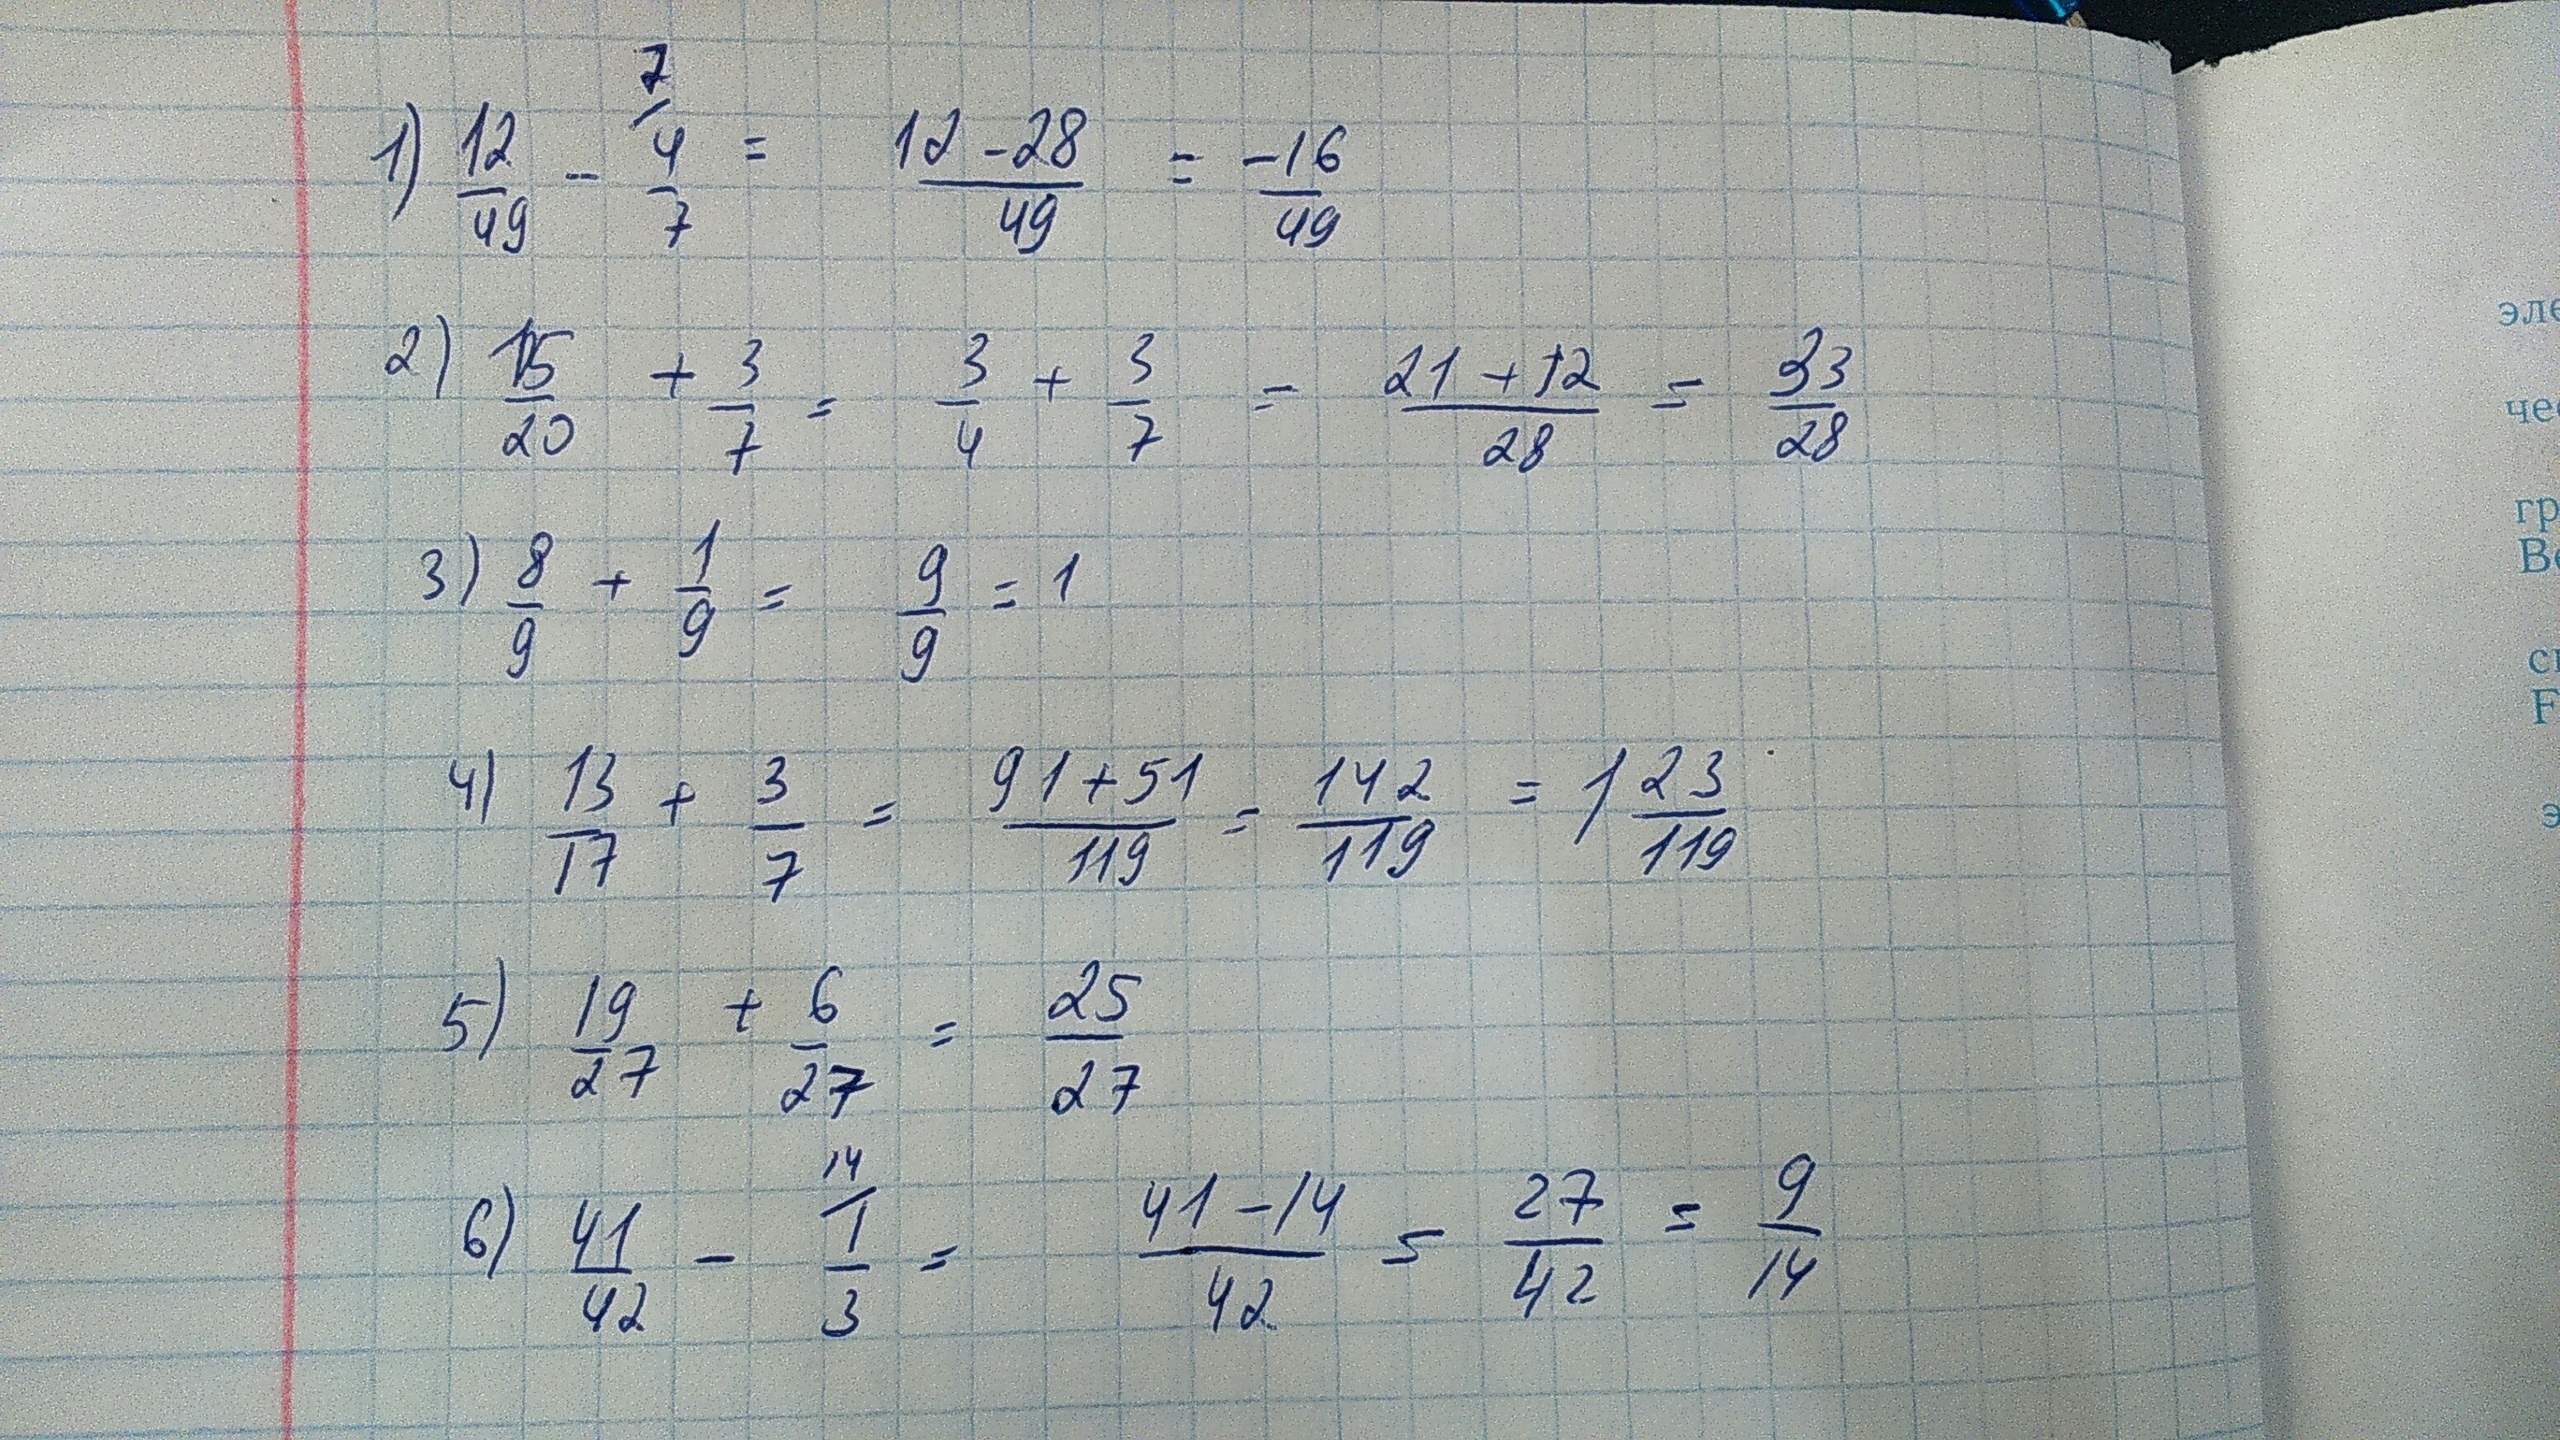 1) 12/49 - 4/7 = (12-28)/49 = -16/49
7
2) 15/20 + 3/7 = 3/4 + 3/7 = (21+12)/28 = 33/28
3) 8/9 + 1/9 = 9/9 = 1
4) 13/17 + 3/7 = (91+51)/119 = 142/119 = 1 23/119
5) 19/27 + 6/27 = 25/27
14
6) 41/42 - 1/3 = (41-14)/42 = 27/42 = 9/14
эле
чес
гр
Ве